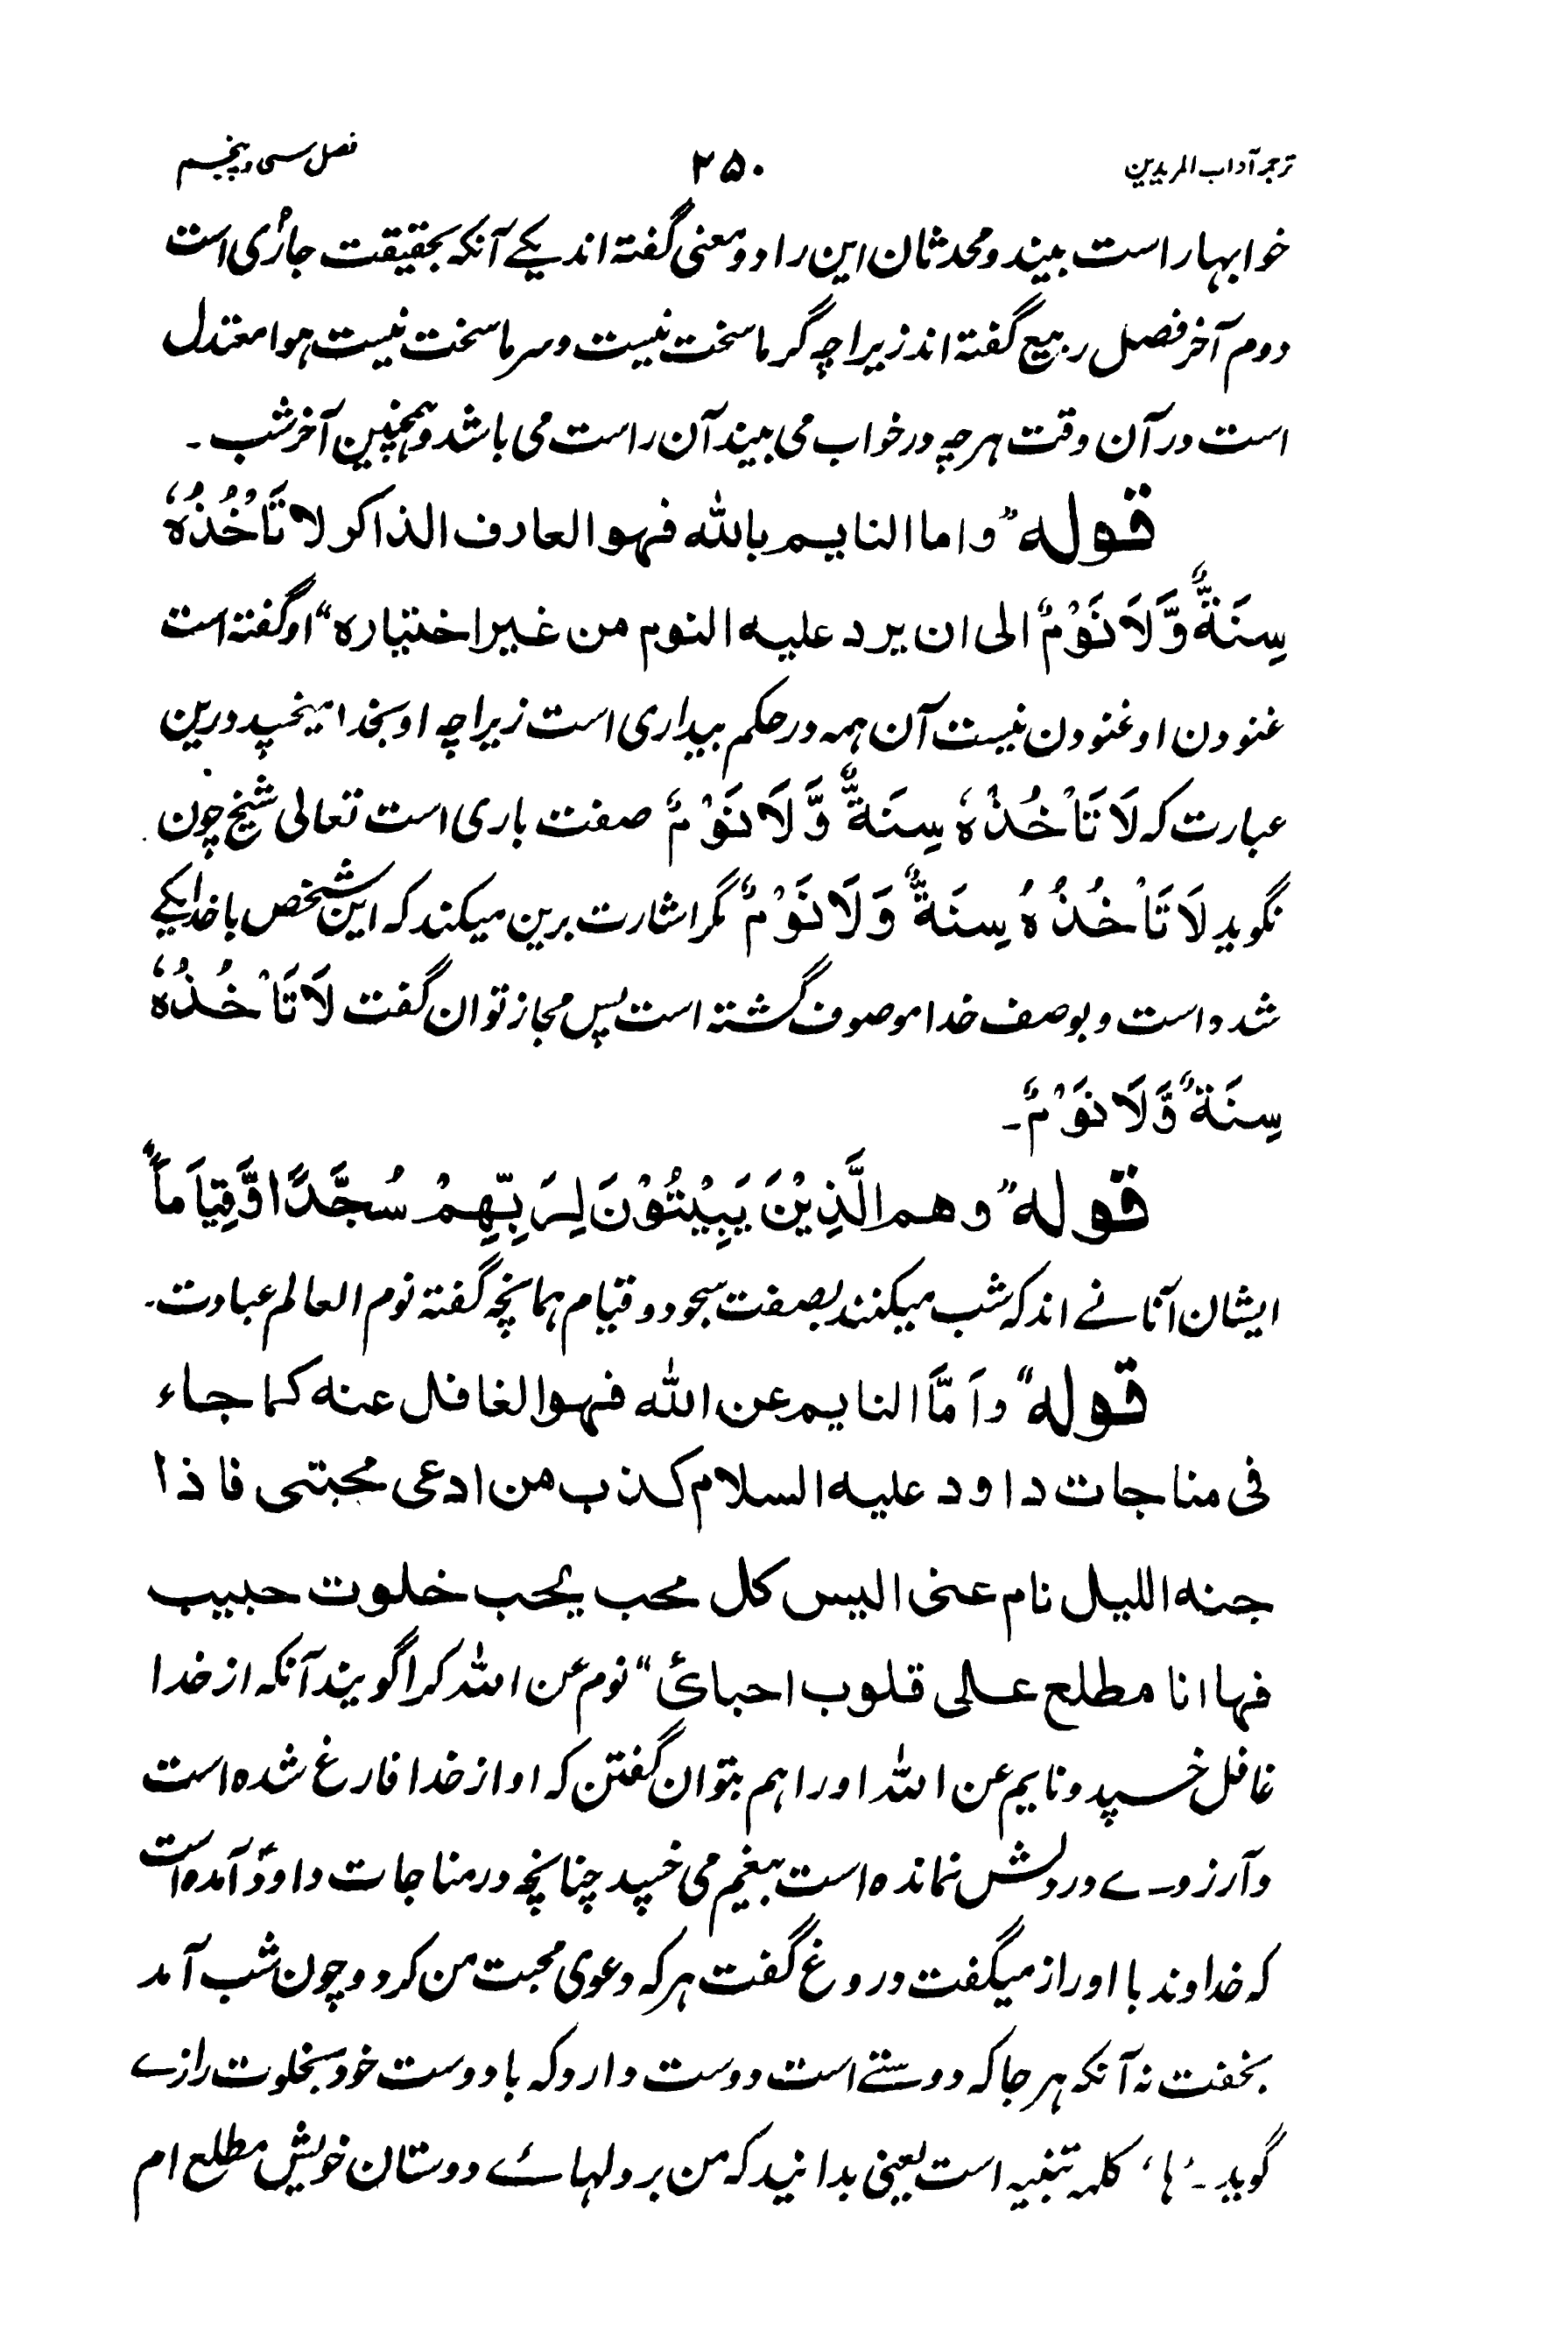 ترجمہ آداب المریدین ۲۵۰ فصل سی و پنجم
خوابہا راست بیند و محدثان این را دو معنی گفتہ اند یکے آنکہ بحقیقت جاری است
دوم آخر فصل ربیع گفتہ اند زیراچہ گرما سخت نیست و سرما سخت نیست ہوا معتدل
است در آن وقت ہرچہ در خواب می بیند آن راست می باشد و ہمچنین آخر شب ۔
قولہ ”واما النایم باللہ فہو العارف الذاکر لا تَاْخُذُہٗ
سِنَۃٌ وَّلَا نَوْمٌ الی ان یرد علیہ النوم من غیر اختیارہ“ او گفتہ است
غنودن او غنودن نیست آن ہمہ در حکم بیداری است زیراچہ او بخدا میخسپد درین
عبارت کہ لَا تَاْخُذُہٗ سِنَۃٌ وَّلَا نَوْمٌ صفت باری است تعالی شیخ چون
نگوید لَا تَاْخُذُہُ سِنَۃٌ وَلَا نَوْمٌ مگر اشارت برین میکند کہ این شخص با خدا یکے
شدہ است و بوصف خدا موصوف گشتہ است پس مجاز توان گفت لَا تَاْخُذُہٗ
سِنَۃٌ وَّلَا نَوْمٌ۔
قولہ ”وھم الَّذِیْنَ یَبِیْتُوْنَ لِرَبِّہِمْ سُجَّدًا وَّقِیَاماً“
ایشان آنانے اند کہ شب میکنند بصفت سجود و قیام ہمانچہ گفتہ نوم العالم عبادت۔
قولہ ”واَمَّا النایم عن اللہ فہو الغافل عنہ کما جاء
فی مناجات داود علیہ السلام کذب من ادعی محبتی فاذا
جنہ اللیل نام عنی الیس کل محب یحب خلوت حبیب
فہا انا مطلع علی قلوب احبائ“ نوم عن اللہ کرا گویند آنکہ از خدا
غافل خسپد و نایم عن اللہ او را ہم بتوان گفتن کہ او از خدا فارغ شدہ است
و آرزوے در دلش نماندہ است بیغم می خسپد چنانچہ در مناجات داودؑ آمدہ است
کہ خداوند با او راز میگفت دروغ گفت ہر کہ دعوی محبت من کرد و چون شب آمد
بخفت نہ آنکہ ہر جا کہ دوستے است دوست دارد کہ با دوست خود بخلوت رازے
گوید ۔ ’ہا‘ کلمہ تنبیہ است یعنی بدانید کہ من بر دلہائے دوستان خویش مطلع ام